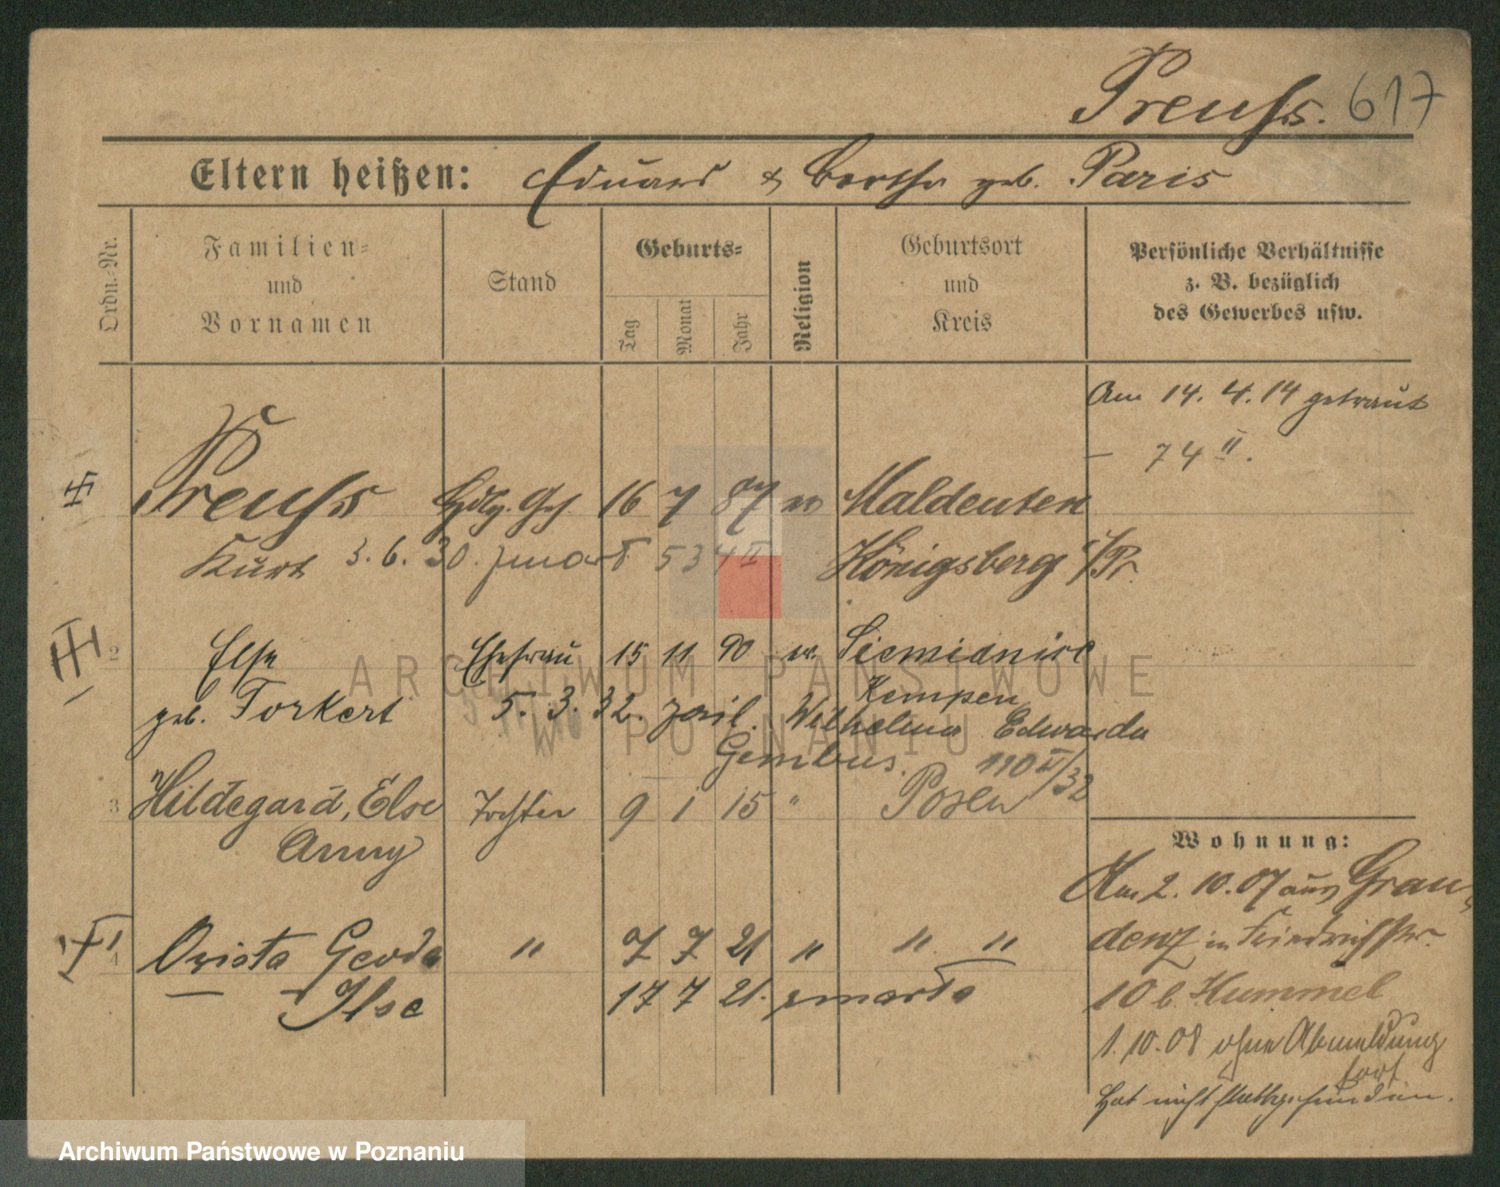 Preuß. 617
Eltern heißen: Eduard & Bertha geb. Paris
Ordn.-Nr.
Familien-
und
Vornamen
Stand
Geburts-
Tag
Monat
Jahr
Religion
Geburtsort
und
Kreis
Persönliche Verhältnisse
z. B. bezüglich
des Gewerbes usw.
Am 14. 4. 14 getraut
– 74 II.
Preuß Hdlg. Geh 16 7 87 ev Maldeuten
Kurt 3. 6. 30. zmarł 534 II Königsberg i/Pr.
2 Else Ehefrau 15 11 90 ev. Siemianice
Kempen
geb. Torkert 5. 3. 32. Wilhelma Edwarda
Gembus. 110 II/32
3 Hildegard, Else Tochter 9 1 15 " Posen
Anny
4 Gerda " 7 7 21 " " "
Ilse 17 7 21. zmarła
Wohnung:
Am 2. 10. 07 aus Grau-
denz in Friedrichstr.
10 b. Hummel
1. 10. 08 ohne Abmeldung
fort
Hat nicht stattgefunden.
ARCHIWUM PAŃSTWOWE
W POZNANIU
Archiwum Państwowe w Poznaniu